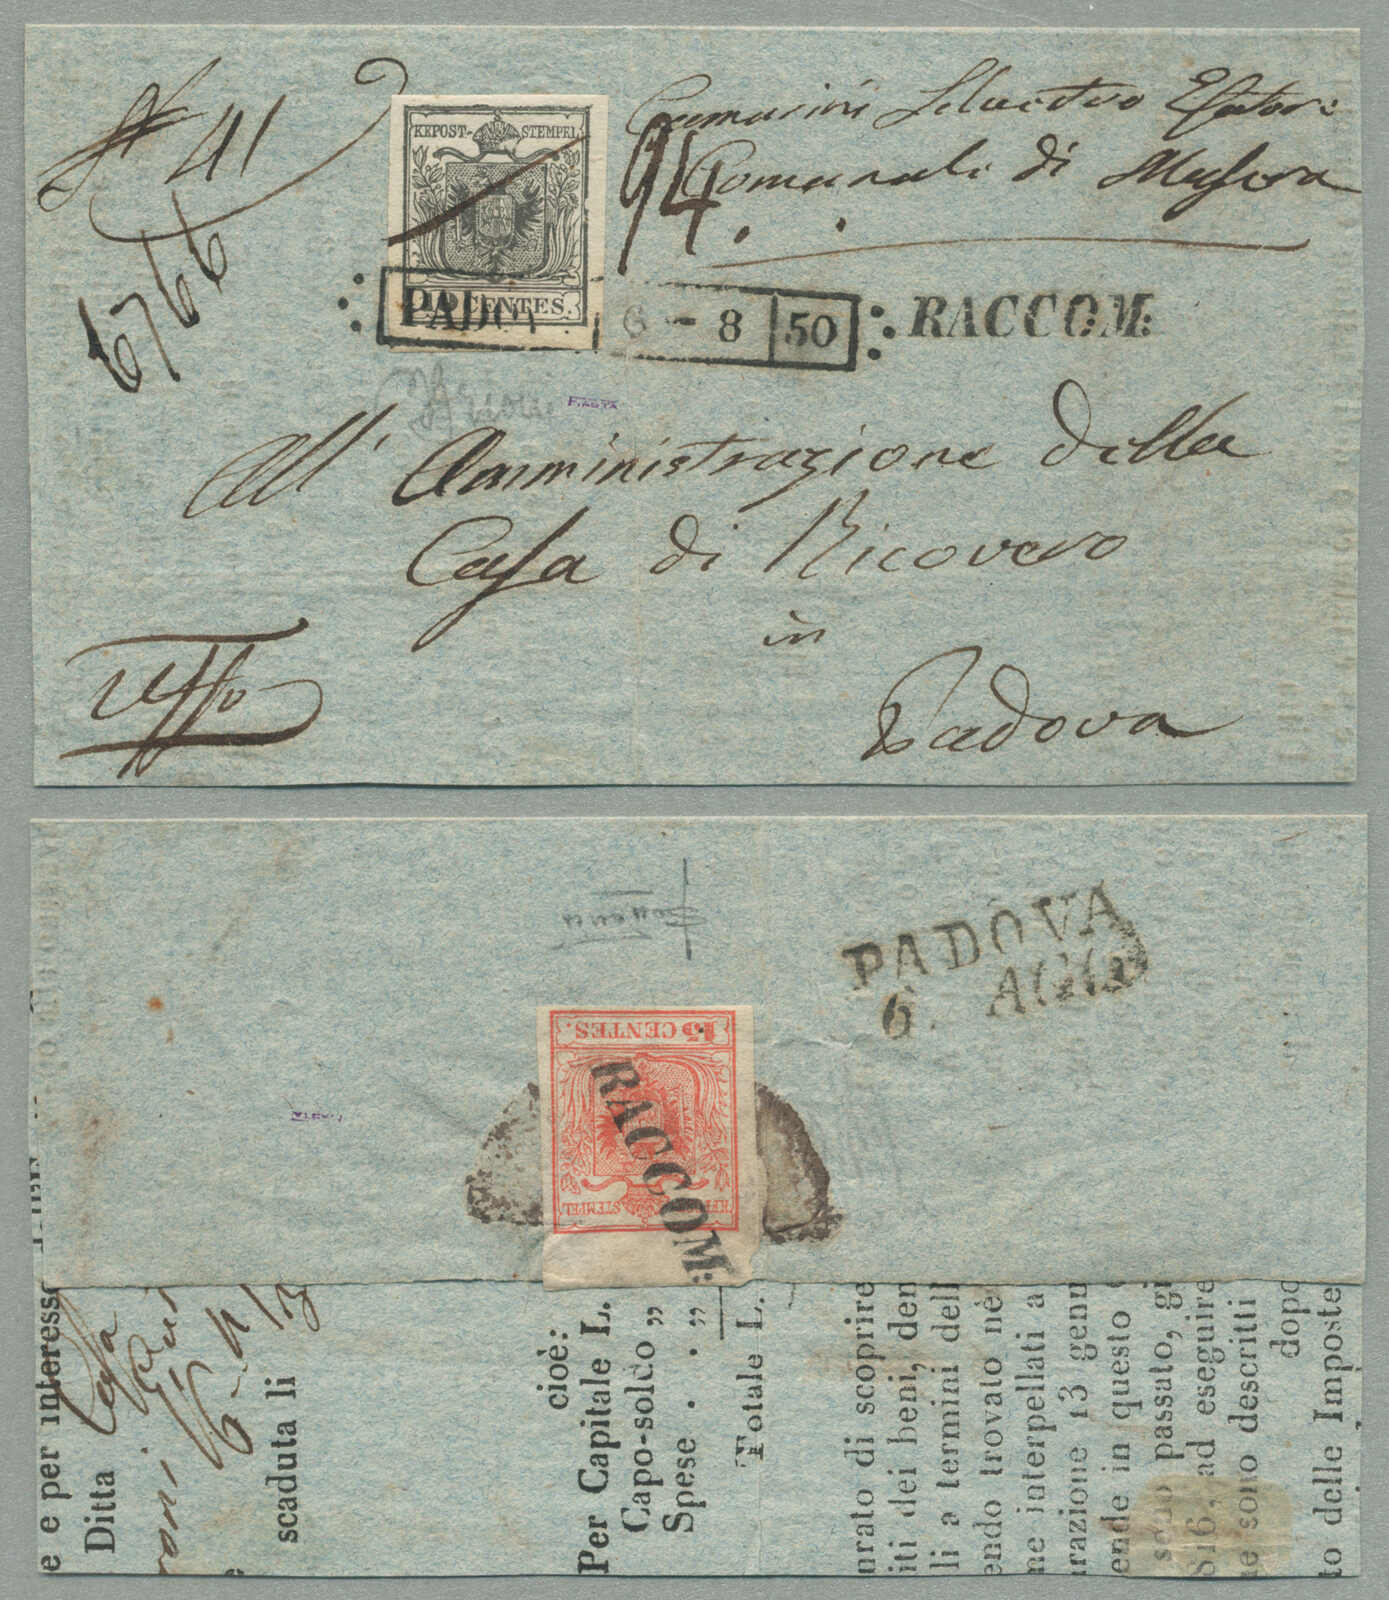 N° 41
6766
KKPOST- STEMPEL
10 CENTES.
94.
Comunale di
PADOV 6 - 8 50
RACCOM:
All' Amministrazione della
Casa di Ricovero
in
Padova
PADOVA
6. AGO
15 CENTES.
RACCOM:
STEMPEL
e e per interesse
Ditta
scaduta li
cioè:
Per Capitale L.
Capo-soldo „
Spese . . „
Totale L.
urato di scoprire
iti dei beni, den
li a termini dell
endo trovato nè
ne interpellati a
razione 13 genu
ende in questo
sodo passato, gi
816, ad eseguire
e sono descritti
dopo
to delle Imposte